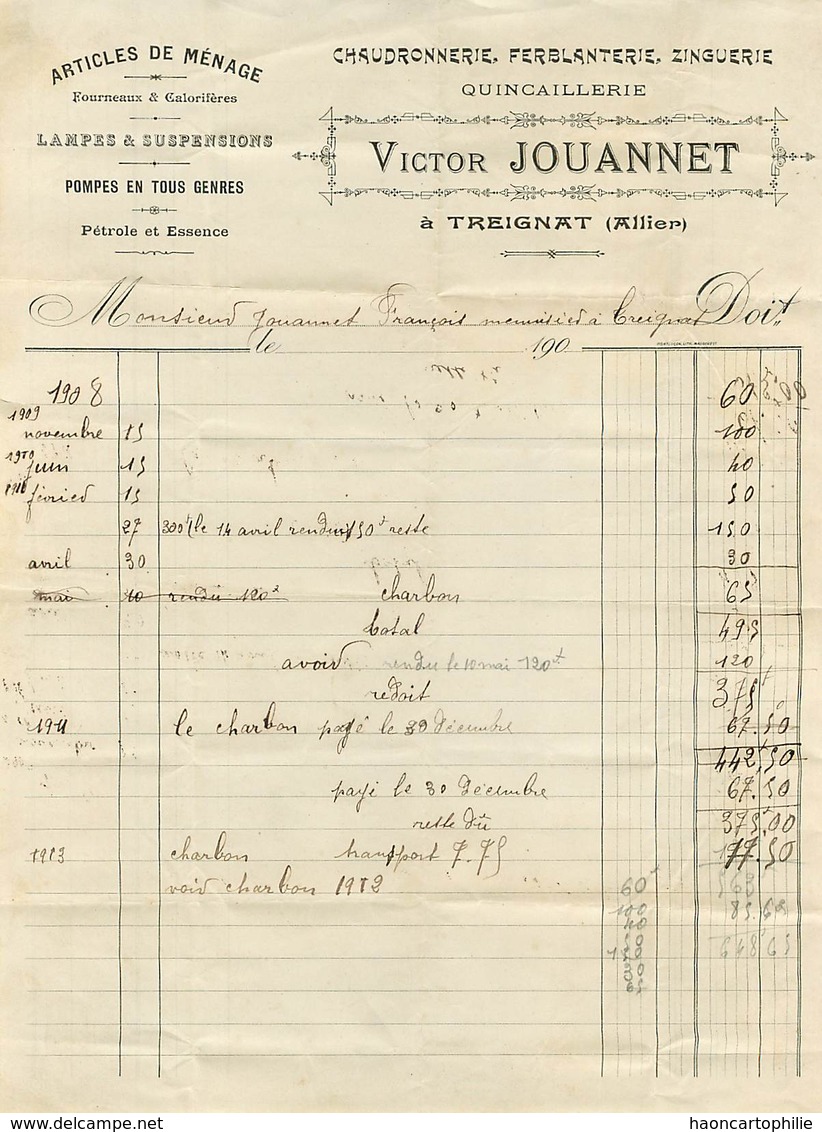 ARTICLES DE MÉNAGE
Fourneaux & Calorifères
LAMPES & SUSPENSIONS
POMPES EN TOUS GENRES
Pétrole et Essence
CHAUDRONNERIE, FERBLANTERIE, ZINGUERIE
QUINCAILLERIE
VICTOR JOUANNET
à TREIGNAT (Allier)
Monsieur Jouannet François menuisier à Treignat Doit
le 190
1908 60
1909
novembre 15 100
1910
juin 15 40
1910
février 15 50
27 300f le 14 avril rendu 150f reste 150
avril 30 30
mai 10 rendu 120f charbon 65
total 495
avoir rendu le 10 mai 120f 120
redoit 375
1911 le charbon payé le 30 Décembre 67.50
442,50
payé le 30 Décembre 67.50
reste dû 375.00
1913 charbon transport 7.75 77.50
voir charbon 1912 60
100
40
648 65
www.delcampe.net
haoncartophilie